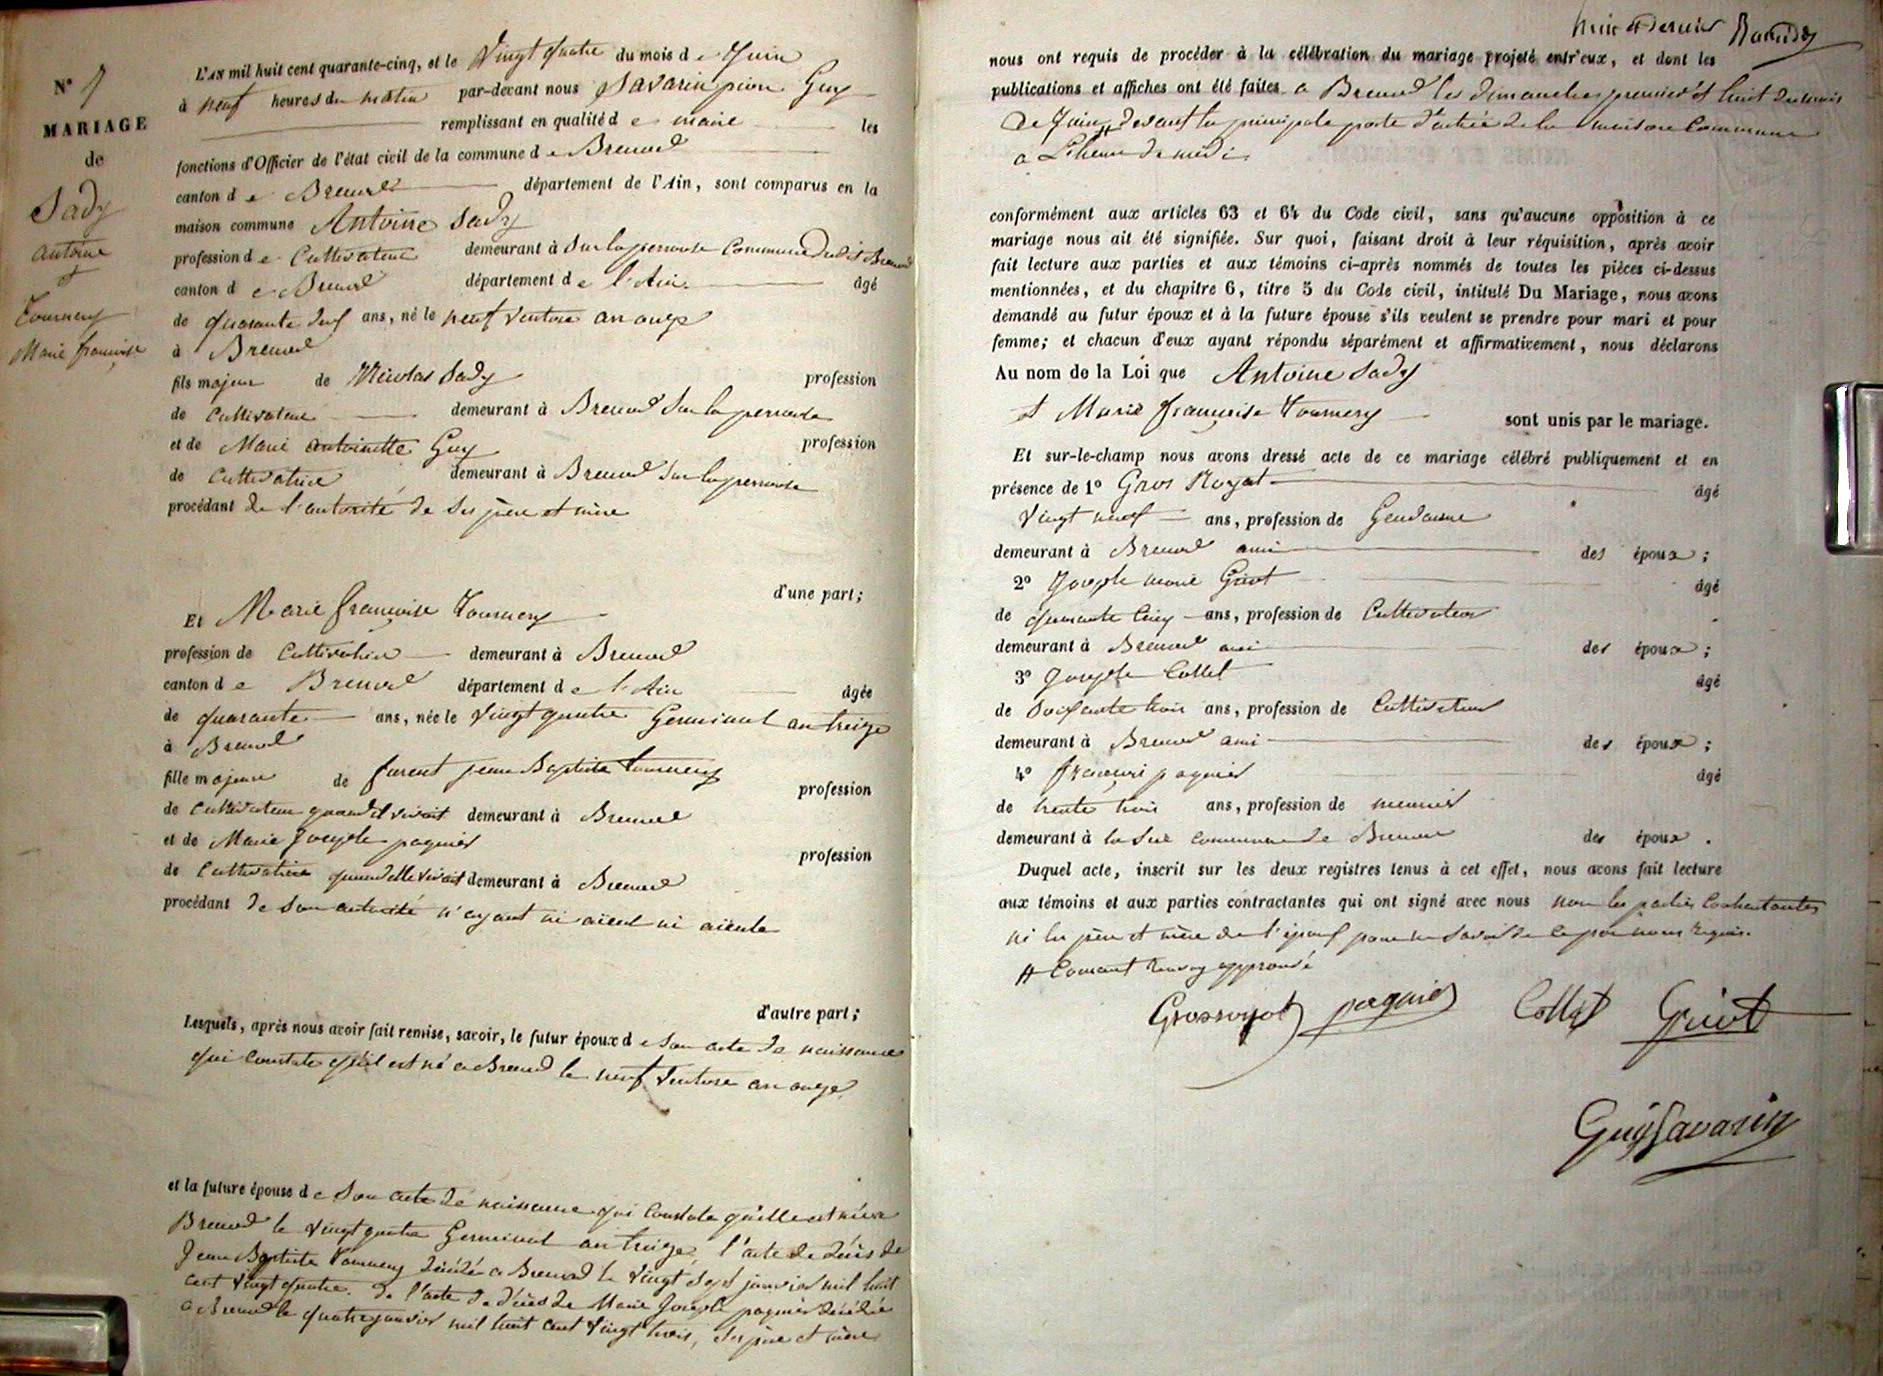 N° 7
MARIAGE
de
Sady
Antoine
et
Tournery
Marie françoise
L'AN mil huit cent quarante-cinq, et le Vingt quatre du mois d e Juin
à neuf heures du matin par-devant nous Savarin pierre Guy
remplissant en qualité d e maire les
fonctions d'Officier de l'état civil de la commune d e Brenod
canton d e Brenod département de l'Ain, sont comparus en la
maison commune Antoine Sady
profession d e Cultivateur demeurant à Sur la perrouse Commune dudit Brenod
canton d e Brenod département d e l'Ain âgé
de quarante deux ans, né le neuf Ventose an onze
à Brenod
fils majeur de Nicolas Sady profession
de Cultivateur demeurant à Brenod Sur la perrouse
et de Marie antoinette Guy profession
de Cultivatrice demeurant à Brenod Sur la perrouse
procédant de l'autorité de ses père et mère
d'une part;
Et Marie françoise Tournery
profession de Cultivatrice demeurant à Brenod
canton d e Brenod département d e l'Ain âgée
de quarante ans, née le Vingt quatre Germinal an treize
à Brenod
fille majeure de furent jean Baptiste Tournery profession
de Cultivateur quand il vivait demeurant à Brenod
et de Marie Josephe paquier profession
de Cultivatrice quand elle vivait demeurant à Brenod
procédant de son autorité n'ayant ni aïeul ni aïeule
d'autre part;
Lesquels, après nous avoir fait remise, savoir, le futur époux d e Son acte de naissance
qui Constate qu'il est né a Brenod le neuf Ventose an onze
et la future épouse d e Son acte de naissance qui Constate qu'elle est née a
Brenod le Vingt quatre Germinal an treize, l'acte de décès de
Jean Baptiste Tournery décédé a Brenod le Vingt Sept janvier mil huit
cent Vingt quatre. de l'acte de décès de Marie Josephe paquier décédée
a Brenod le quatre janvier mil huit cent Vingt trois, ses père et mère
huit et dernier
nous ont requis de procéder à la célébration du mariage projeté entr'eux, et dont les
publications et affiches ont été faites a Brenod les dimanches premier et huit du mois
de Juin # devant la principale porte d'entrée de la maison Commune
a L'heure de midi
conformément aux articles 63 et 64 du Code civil, sans qu'aucune opposition à ce
mariage nous ait été signifiée. Sur quoi, faisant droit à leur réquisition, après avoir
fait lecture aux parties et aux témoins ci-après nommés de toutes les pièces ci-dessus
mentionnées, et du chapitre 6, titre 5 du Code civil, intitulé Du Mariage, nous avons
demandé au futur époux et à la future épouse s'ils veulent se prendre pour mari et pour
femme; et chacun d'eux ayant répondu séparément et affirmativement, nous déclarons
Au nom de la Loi que Antoine Sady
et Marie françoise Tournery sont unis par le mariage.
Et sur-le-champ nous avons dressé acte de ce mariage célébré publiquement et en
présence de 1° Gros Royat âgé
Vingt neuf ans, profession de Gendarme
demeurant à Brenod ami des époux;
2° Joseph marie Griot âgé
de quarante Cinq ans, profession de Cultivateur
demeurant à Brenod ami des époux;
3° Joseph Collet âgé
de Soixante trois ans, profession de Cultivateur
demeurant à Brenod ami des époux;
4° françois paquier âgé
de trente trois ans, profession de meunier
demeurant à commune de Brenod des époux.
Duquel acte, inscrit sur les deux registres tenus à cet effet, nous avons fait lecture
aux témoins et aux parties contractantes qui ont signé avec nous non les parties Contractantes
ni les père et mère de l'époux pour ne Savoir de ce par nous requis.
# Courant renvoy approuvé
Grosroyat paquier Collet Griot
Guy Savarin